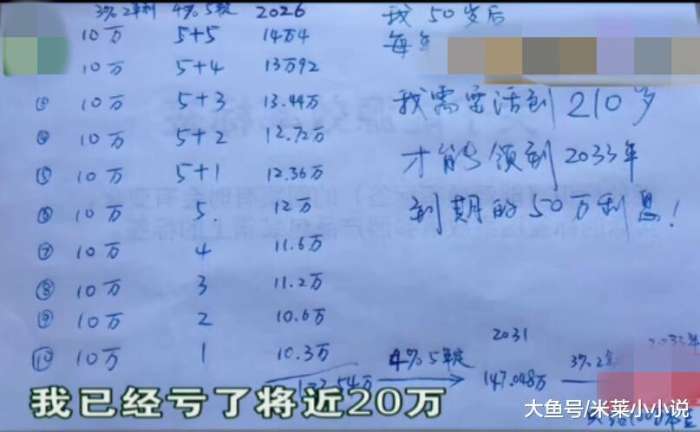 3% 2年利 4% 5年定 2026
10万 5+5 14万4
10万 5+4 13万92
③ 10万 5+3 13.44万
④ 10万 5+2 12.72万
⑤ 10万 5+1 12.36万
⑥ 10万 5. 12万
⑦ 10万 4 11.6万
⑧ 10万 3 11.2万
⑨ 10万 2 10.6万
⑩ 10万 1 10.3万
我50岁后
每年
我需要活到210岁
才能领到2033年
到期的50万利息!
4% 5年定
2031
147.048万
3% 2年
2033年
我已经亏了将近20万
大鱼号/米莱小小说